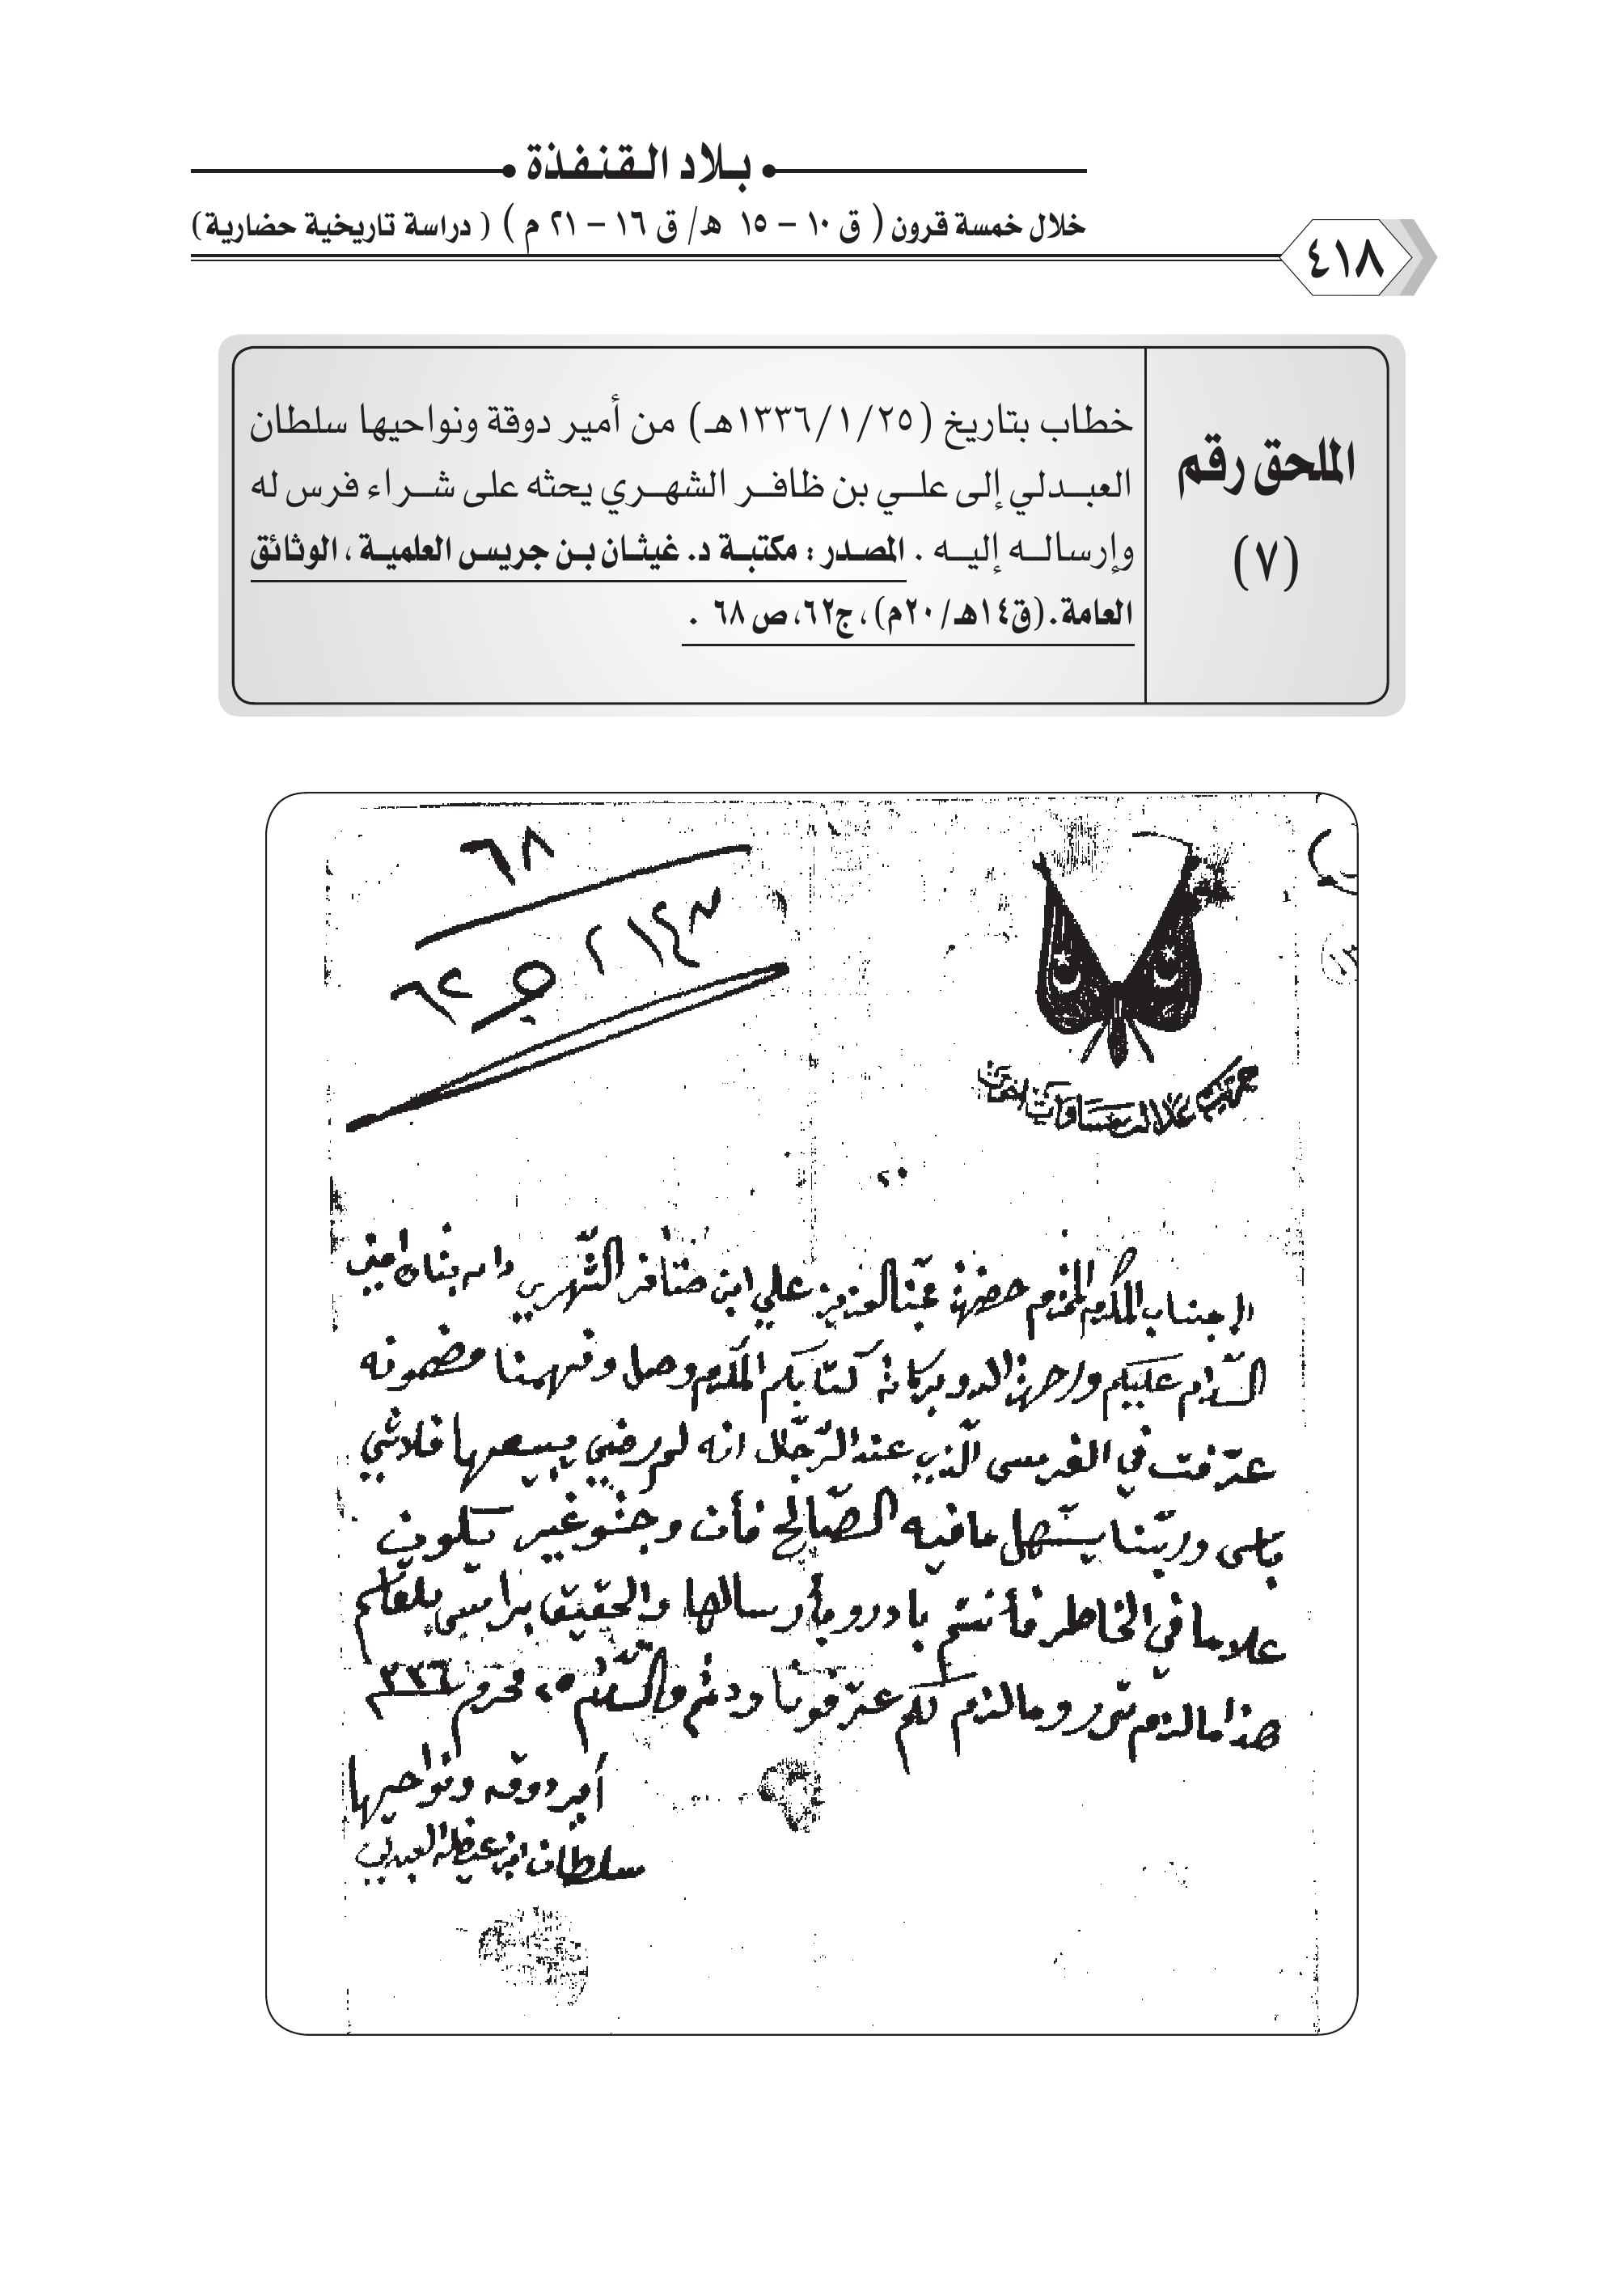 بلاد القنفذة
خلال خمسة قرون ( ق ١٠ – ١٥ هـ/ ق ١٦ – ٢١ م ) ( دراسة تاريخية حضارية)
٤١٨
الملحق رقم
(٧)
خطاب بتاريخ (١٣٣٦/١/٢٥هـ) من أمير دوقة ونواحيها سلطان
العبدلي إلى علي بن ظافر الشهري يحثه على شراء فرس له
وإرساله إليه . المصدر : مكتبة د. غيثان بن جريس العلمية ، الوثائق
العامة. (ق١٤هـ/ ٢٠م) ، ج٦٢، ص ٦٨ .
٦٨
١٤ ٢
ج ٦٢
حريت عدالت مساوات
جناب المكرم المحترم حضرة عمنا العزيز علي ابن ضافر الشهري دام
السلام عليكم ورحمة الله وبركاته كتابكم المكرم وصل وفهمنا مضمونه
عرفت في الفرس الذي عند الرجال انه لم رضي يبيعها فلاشي
باس وربنا يسهل مافيه الصالح فأن وجتو غير يكون
علاما في الخاطر فأنتم بادرو بأرسالها والحقيق براس
هذا مالزم حرر ومالزم لكم عرفونا ودمتم والسلام ٢٥ محرم ٣٣٦
أمير دوقه ونواحيها
سلطان ابن العبدلي